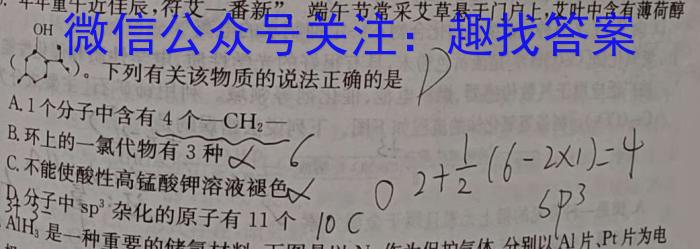 年年重午近佳辰,符艾一番新”  端午节常采艾草悬于门户上,艾叶中含有薄荷醇
微信公众号关注：趣找答案
OH
( )。下列有关该物质的说法正确的是 D
A.1个分子中含有4个—CH₂
B.环上的一氯代物有3种 6
C.不能使酸性高锰酸钾溶液褪色
D.分子中sp³杂化的原子有11个 10C O 2+½(6-2×1)=4
sp³
AlH₃是一种重要的储氢材料
作为保护气体,分别以Al片、Pt片为电